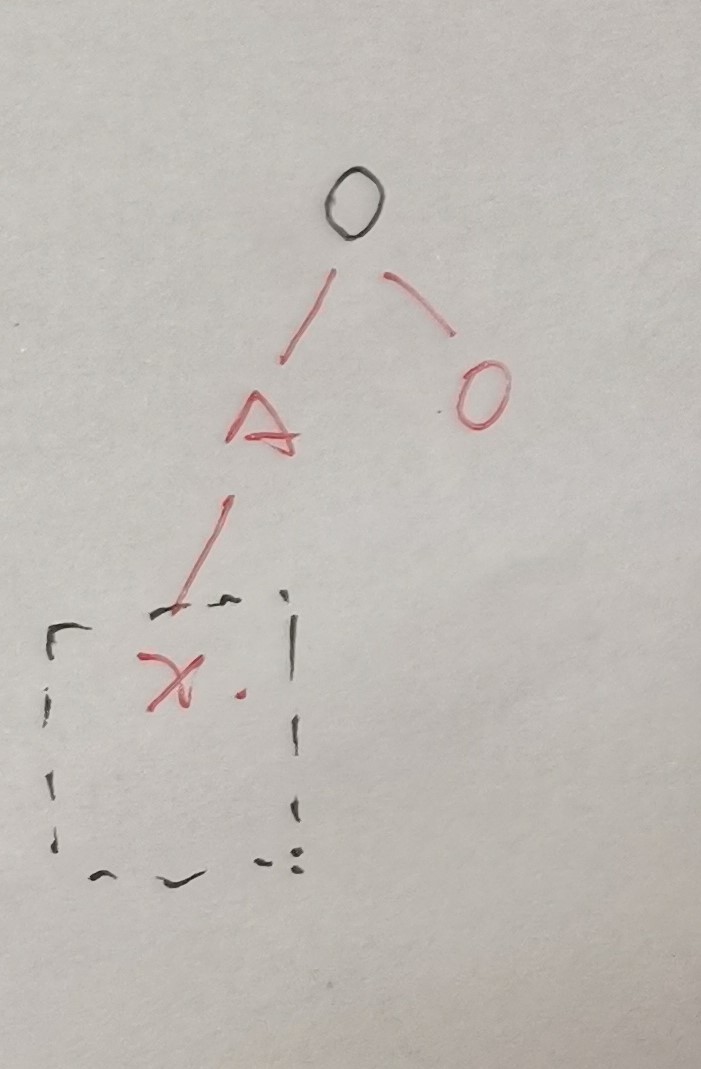 O
A O
x.